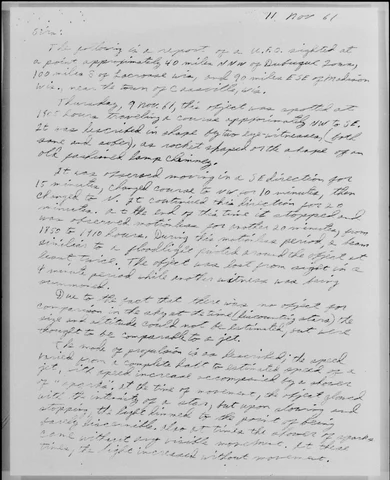 11 Nov 61
Sirs:
The following is a report of a U.F.O. sighted at
a point approximately 40 miles NNW of Dubuque Iowa,
100 miles S of Lacrosse Wis, and 90 miles ESE of Madison
Wis. near the town of Cassville, Wis.
Thursday, 9 Nov. 61, this object was spotted at
hours traveling a course approximately NW to SE.
It was described in shape by two eye witnesses, (both
sane and sober), as rocket shaped or the shape of an
old fashioned lamp chimney.
It was observed moving in a SE direction for
15 minutes, changed course to NW for 10 minutes, then
changed to N. It continued this direction for 20
minutes. At the end of this time it stopped and
was observed motionless for another 20 minutes, from
1850 to 1910 hours. During this motionless period, a beam
similar to a floodlight rotated around the object at
least twice. The object was lost from sight in a
4 minute period while another witness was being
summoned.
Due to the fact that there was no object for
comparison in the sky at the time (discounting stars) the
size and altitude could not be estimated, but were
thought to be comparable to a jet.
The mode of propulsion is as described; the speed
varied from a complete halt to estimated speed of a
jet, with speed increase accompanied by a shower
of "sparks". At the time of movement, the object glowed
with the intensity of a star, but upon slowing and
stopping, the light dimmed to the point of being
barely discernible. Also at times the shower of sparks
came without any visible movement. At these
times, the light increased without movement.